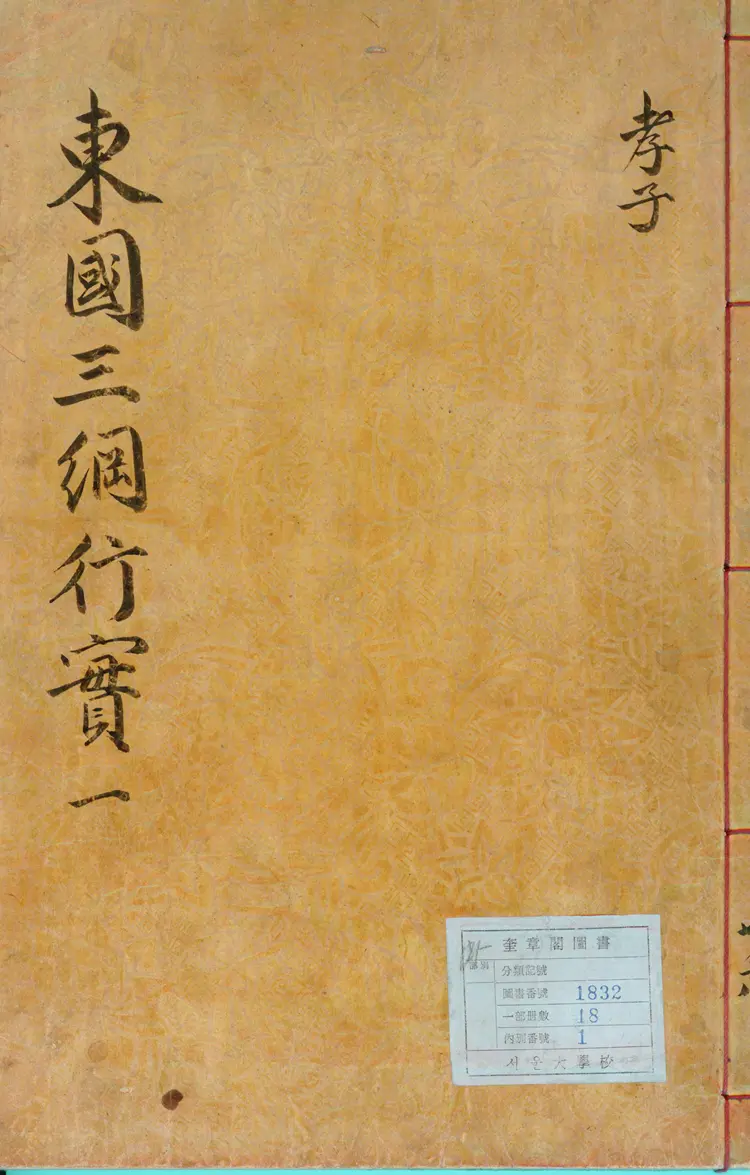 孝子
東國三綱行實 一
奎章閣圖書
分類記號
圖書番號 1832
一部冊數 18
內別番號 1
서울大學校